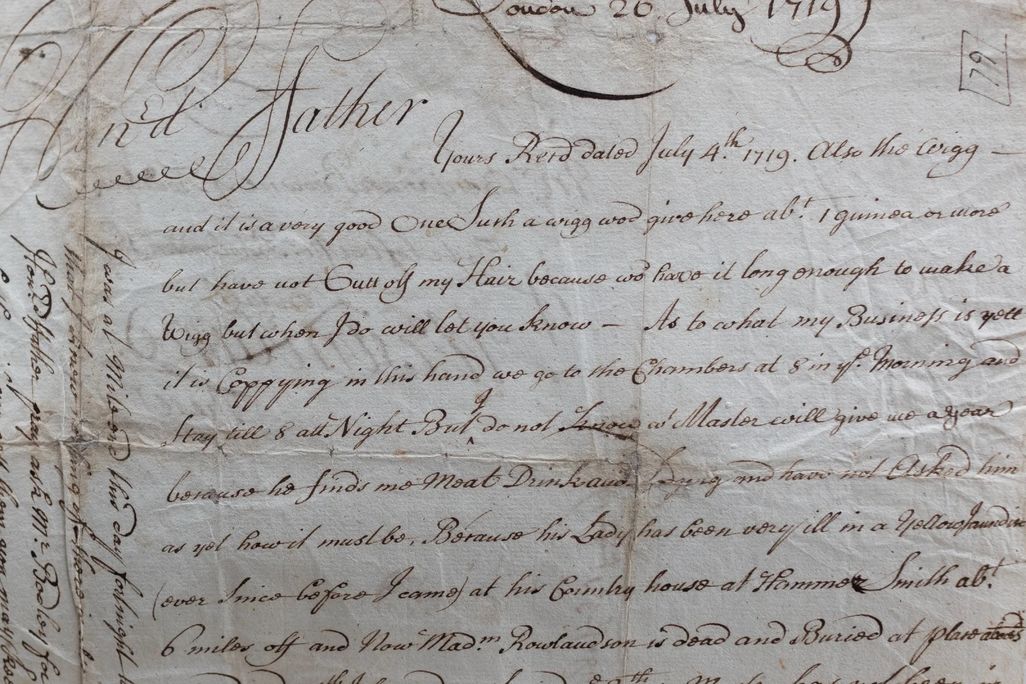 London 26 July 1719
79
Hon.rd Father
Yours Recd dated July 4.th 1719. Also the Wigg —
and it is a very good One Such a wigg wod give here abt 1 guinea or more
but have not Cutt off my Hair because wod have it long enough to make a
Wigg but when I do will let you know — As to what my Business is yett
it is Coppying in this hand we go to the Chambers at 8 in ye Morning and
Stay till 8 att Night But I do not Know wt Master will give me a year
because he finds me Meat Drink and and have not Asked him
as yet how it must be, Because his Lady has been very ill in a Yellow Jaundice
(ever Since before I came) at his Country house at Hammer Smith abt
6 miles off and Now Madm Rowlandson is dead and Buried at place
I was at Mile End this day fortnight
Hond Father pray ask Mr